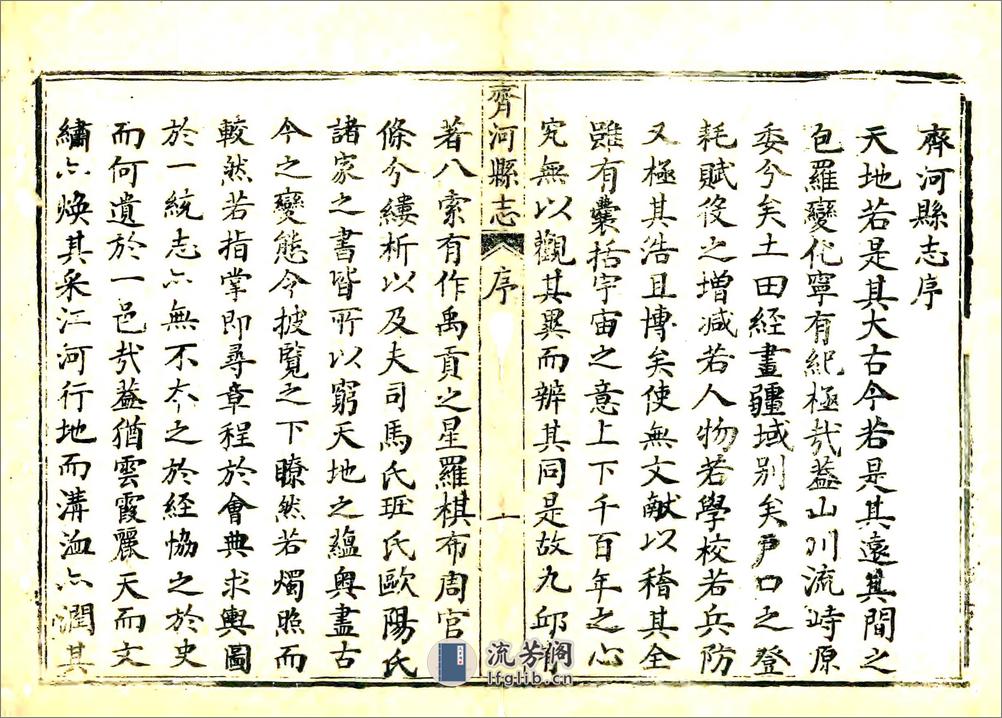 齊河縣志序
天地若是其大古今若是其遠其間之
包羅變化寧有紀極㢤葢山川流峙原
委分矣土田經畫疆域别矣戸口之登
耗賦役之增減若人物若學校若兵防
又極其浩且博矣使無文献以稽其全
雖有囊括宇宙之意上下千百年之心
究無以觀其異而辨其同是故九邱
齊河縣志 序 一
著八索有作禹貢之星羅棋布周官
條分縷析以及夫司馬氏班氏歐陽氏
諸家之書皆所以窮天地之蘊奥盡古
今之變態今披覧之下瞭然若燭照而
較然若指掌即尋章程於會典求輿圖
於一統志亦無不本之於経協之於史
而何遺於一邑㢤葢猶雲霞麗天而文
繡亦煥其采江河行地而溝洫亦潤其
流芳阁
lfglib.cn